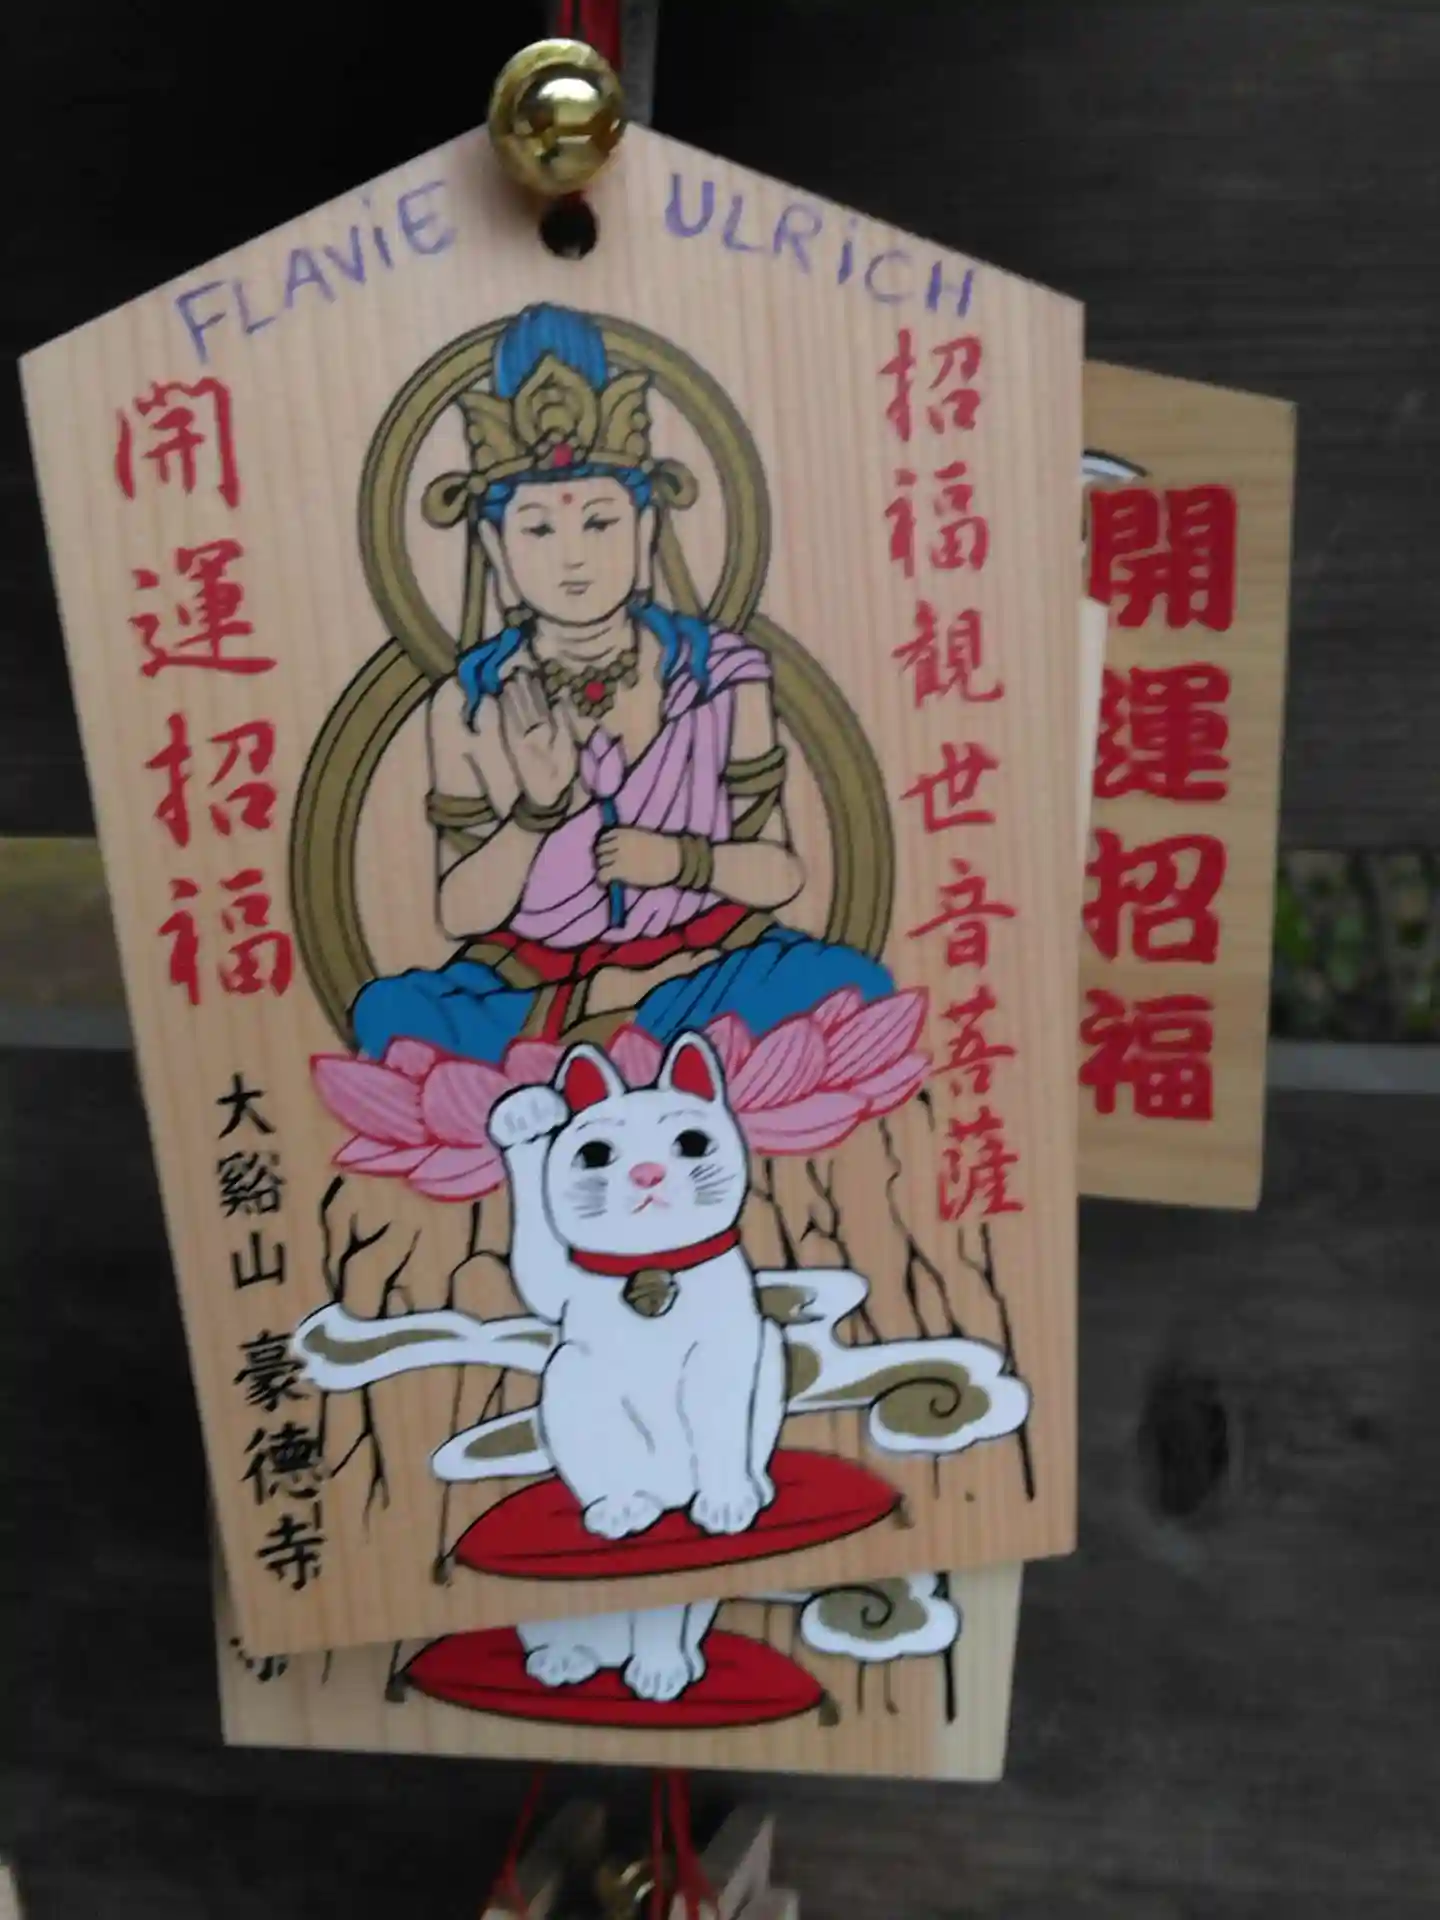 FLAViE ULRiCH
招福観世音菩薩
開運招福
大谿山 豪徳寺
開運招福